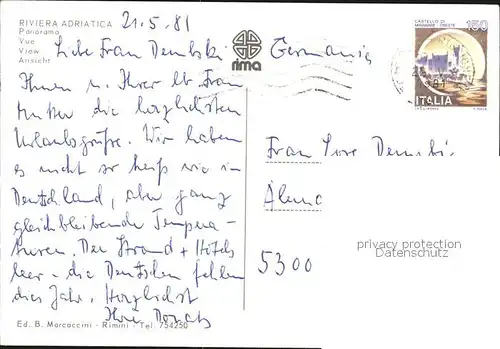 RIVIERA ADRIATICA
Panorama
Vue
View
Ansicht
21.5.81
rima
Germania
CASTELLO DI
MIRAMARE - TRIESTE
150
ITALIA
Liebe Frau Dembski
Ihnen u. Ihrer lb. Frau
Mutter die herzlichsten
Urlaubsgrüße. Wir haben
es nicht so heiß wie in
Deutschland, aber ganz
gleichbleibende Tempera-
turen. Der Strand + Hotels
leer - die Deutschen fehlen
dies Jahr. Herzlichst
Ihre
Frau
5300
privacy protection
Datenschutz
Ed. B. Marcaccini - Rimini - Tel. 754250